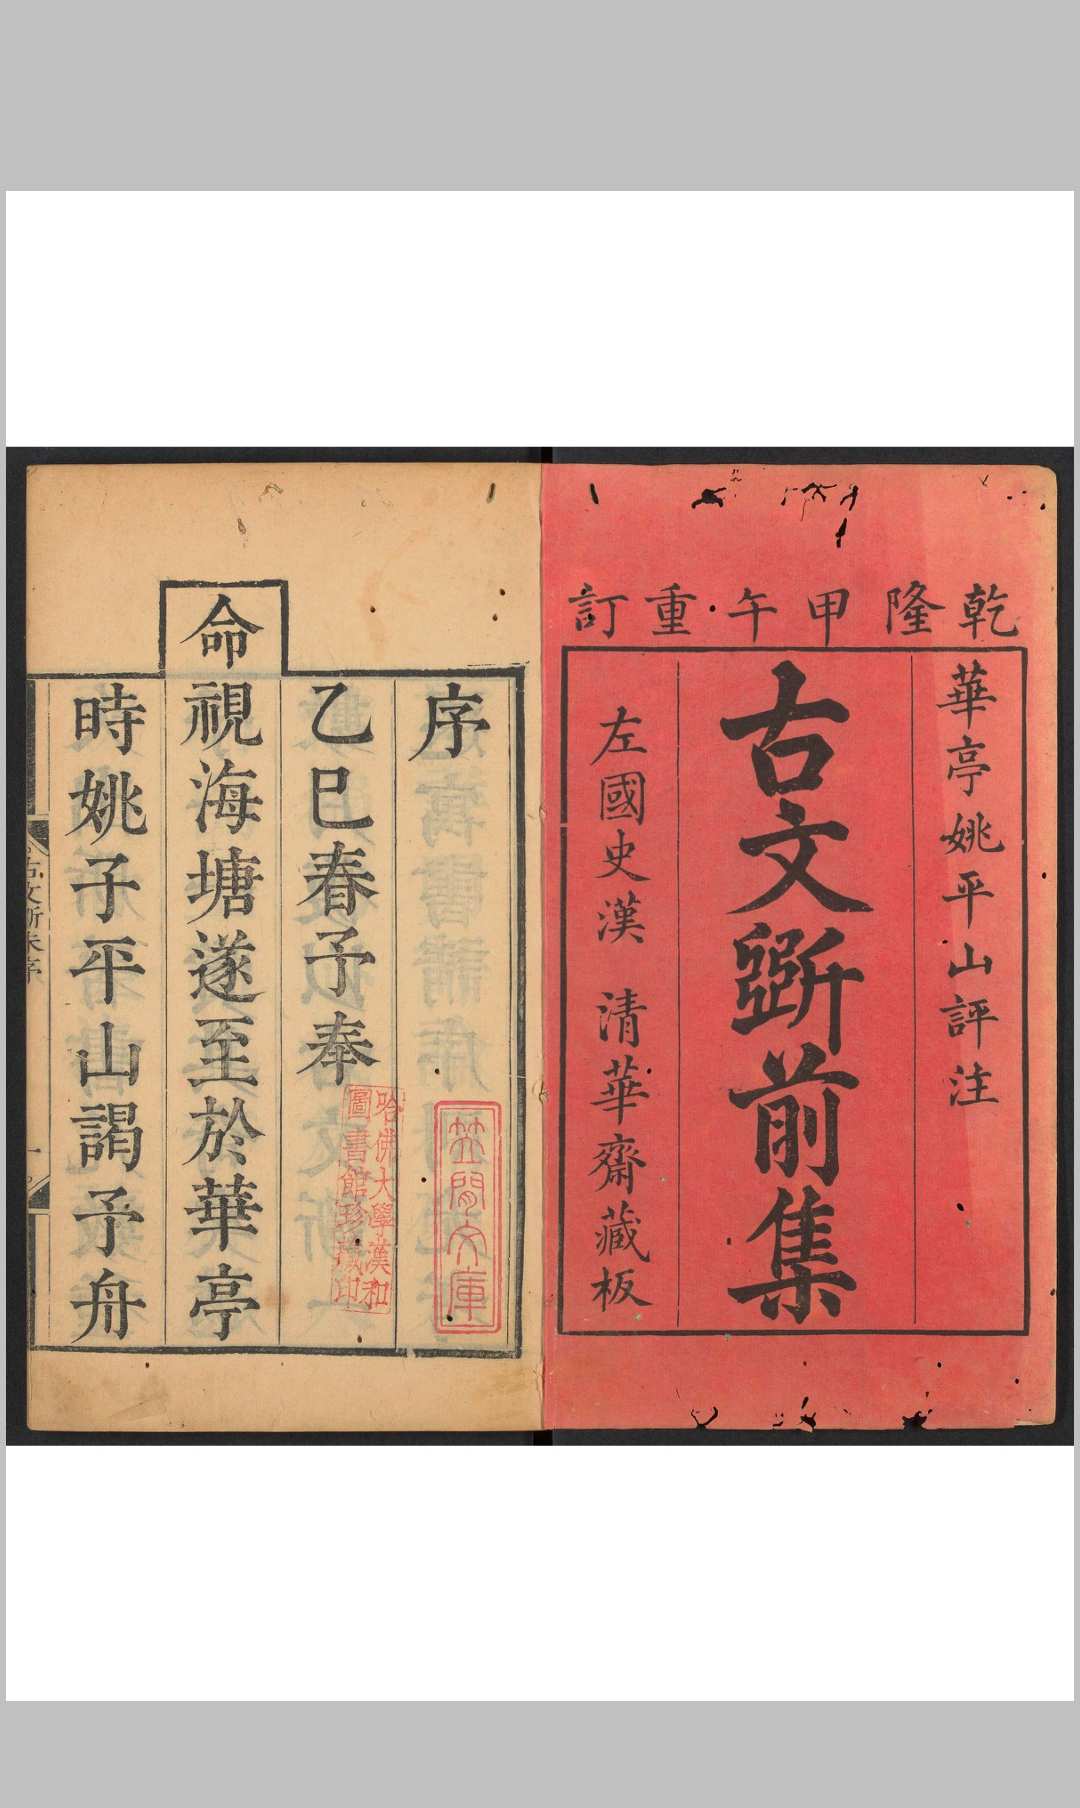 乾隆甲午重訂
華亭姚平山評注
古文斵前集
左國史漢 清華齋藏板
序
乙巳春予奉
命
視海塘遂至於華亭
時姚子平山謁予舟
哈佛大學漢和
圖書館珍藏印
文庫